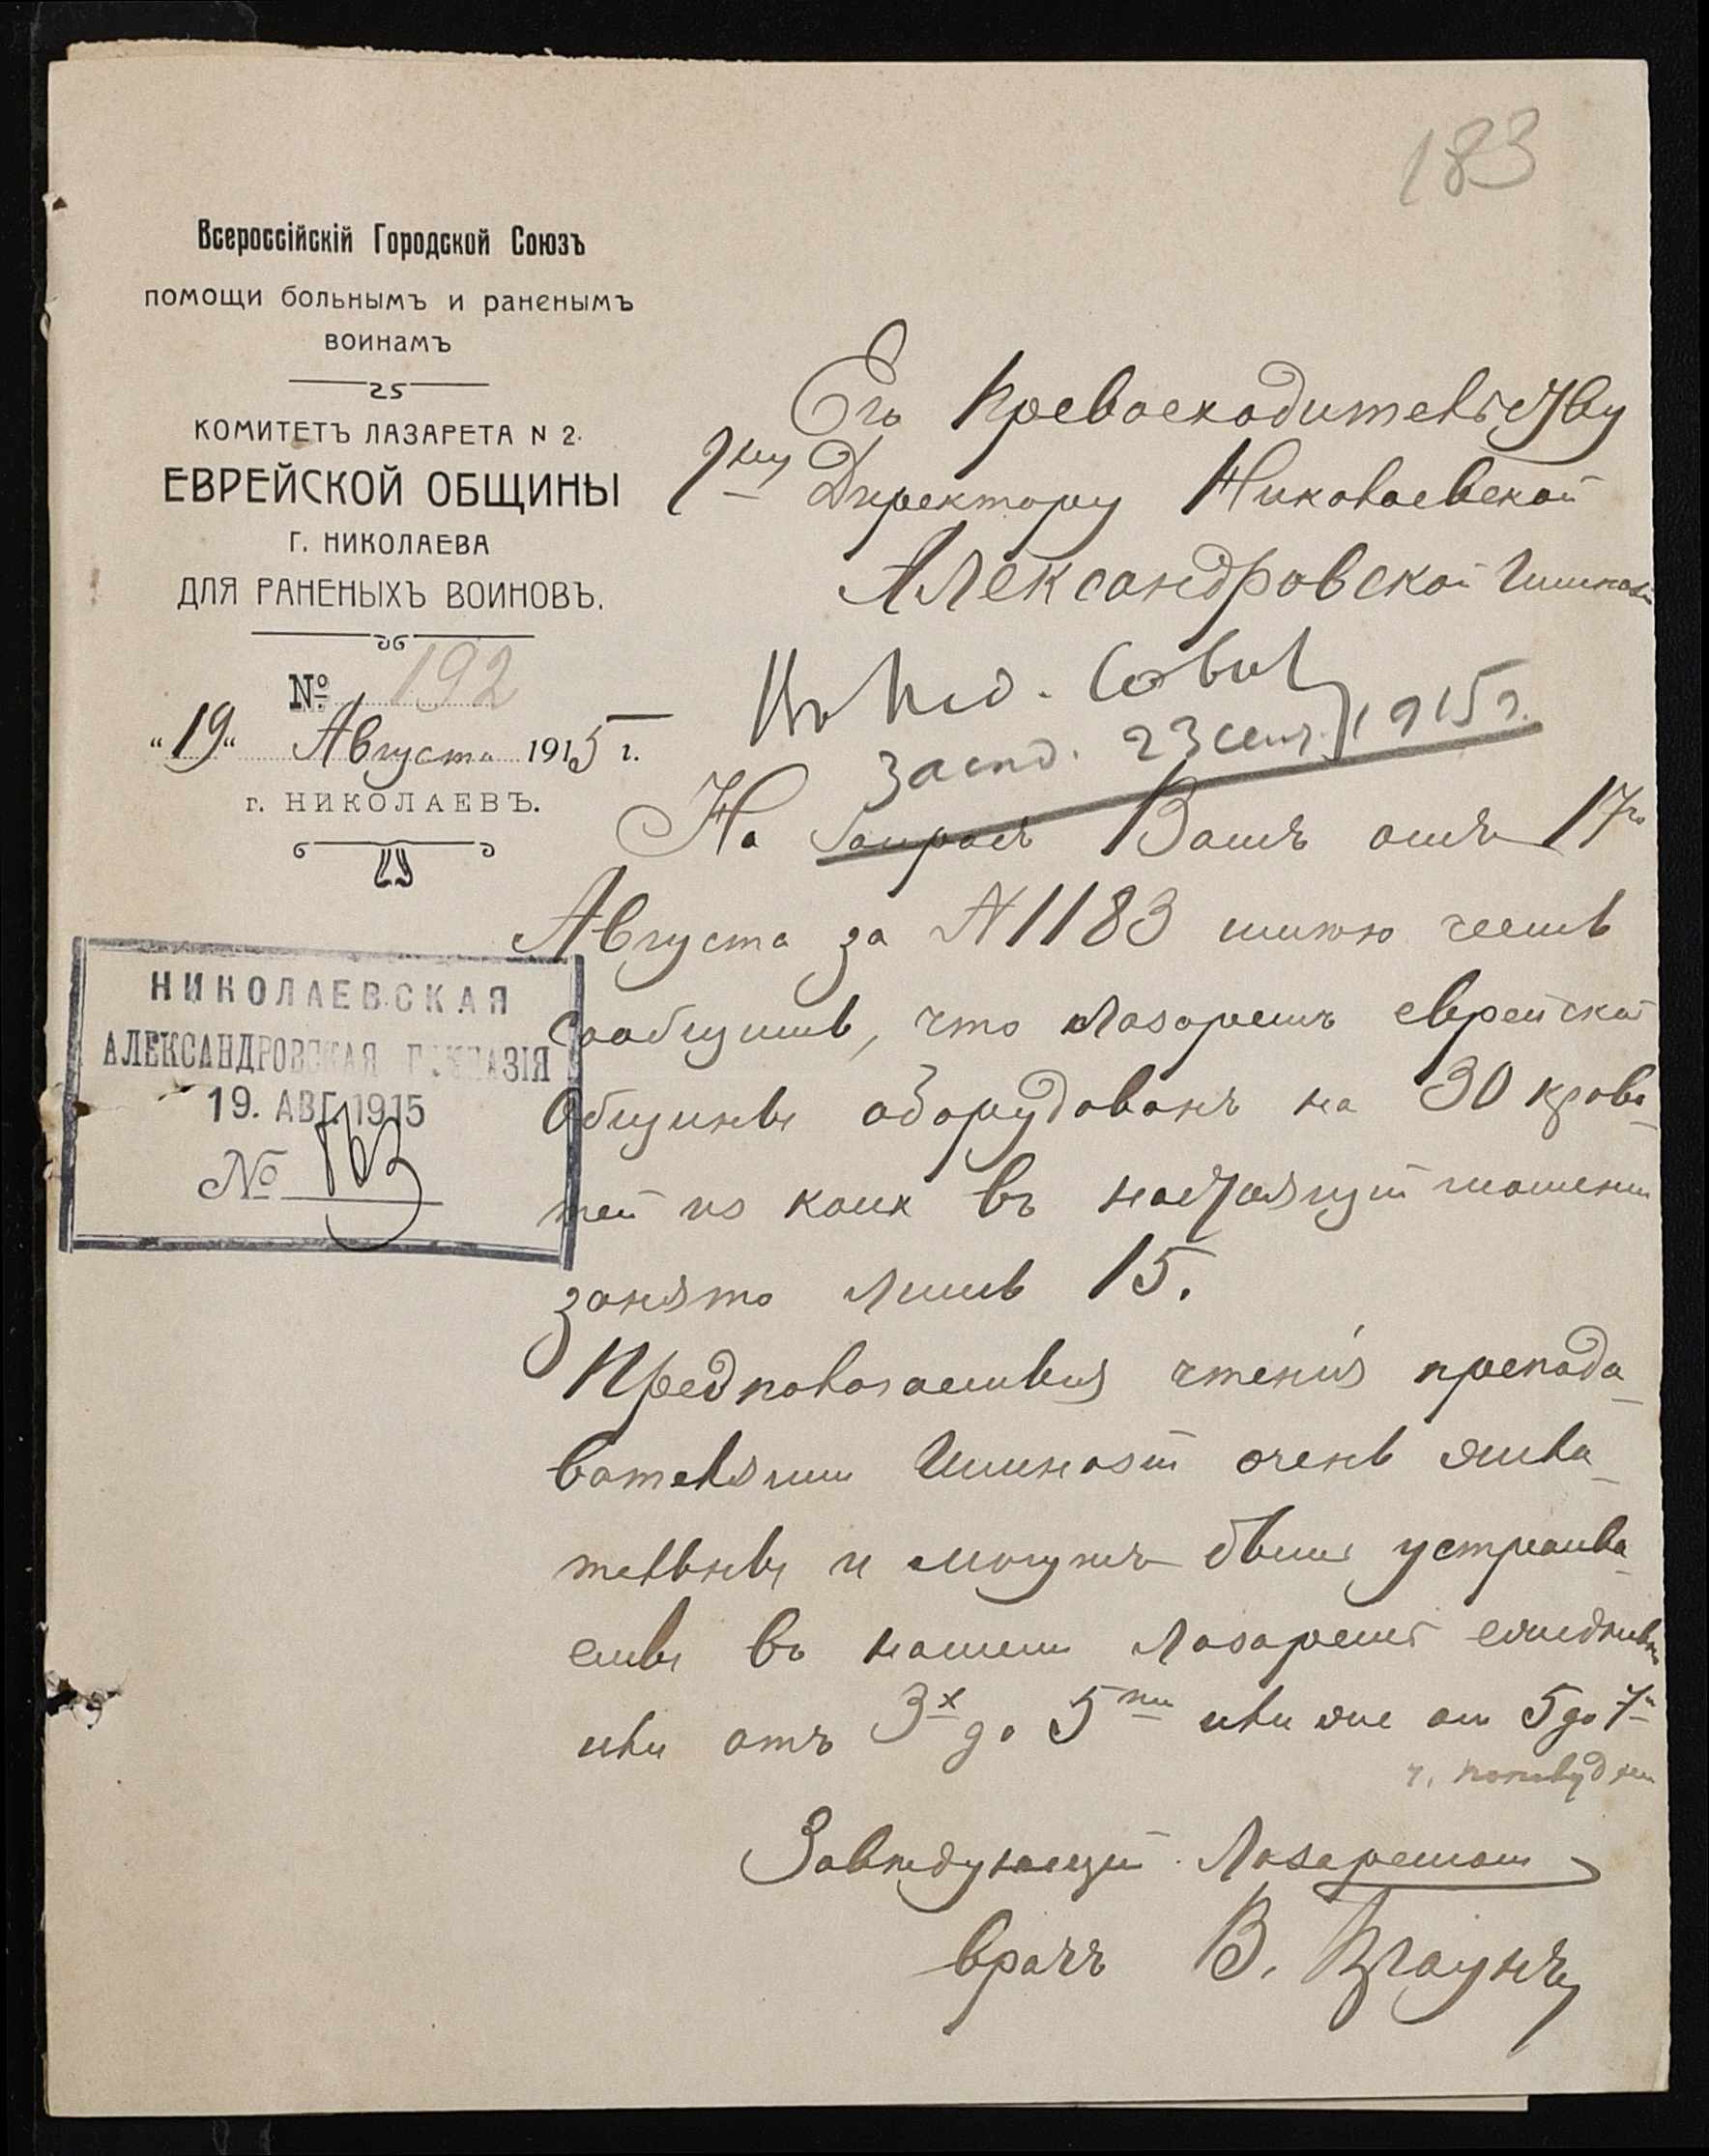 183
Всероссійскій Городской Союзъ
помощи больнымъ и раненымъ
воинамъ
КОМИТЕТЪ ЛАЗАРЕТА N 2.
ЕВРЕЙСКОЙ ОБЩИНЫ
Г. НИКОЛАЕВА
ДЛЯ РАНЕНЫХЪ ВОИНОВЪ.
№ 192
"19" Августа 1915 г.
г. НИКОЛАЕВЪ.
НИКОЛАЕВСКАЯ
АЛЕКСАНДРОВСКАЯ ГИМНАЗІЯ
19. АВГ. 1915
№
Его Превосходительству
Гну Директору Николаевской
Александровской Гимназіи
Къ Пед. Совѣт
засѣд. 23 сент. 1915 г.
На запросъ Вашъ отъ 17го
Августа за N 1183 имѣю честь
сообщить, что лазаретъ еврейской
Общины оборудованъ на 30 крова-
тей из коих въ настоящій моментъ
занято лишь 15.
Предполагаемыя чтенія препода-
вателями Гимназіи очень жела-
тельны и могутъ быть устраива-
емы въ нашем лазаретѣ ежедневно
или отъ 3х до 5ти или же от 5 до 7ми
ч. пополудни
Завѣдующій Лазаретом
врачъ В. Браунъ